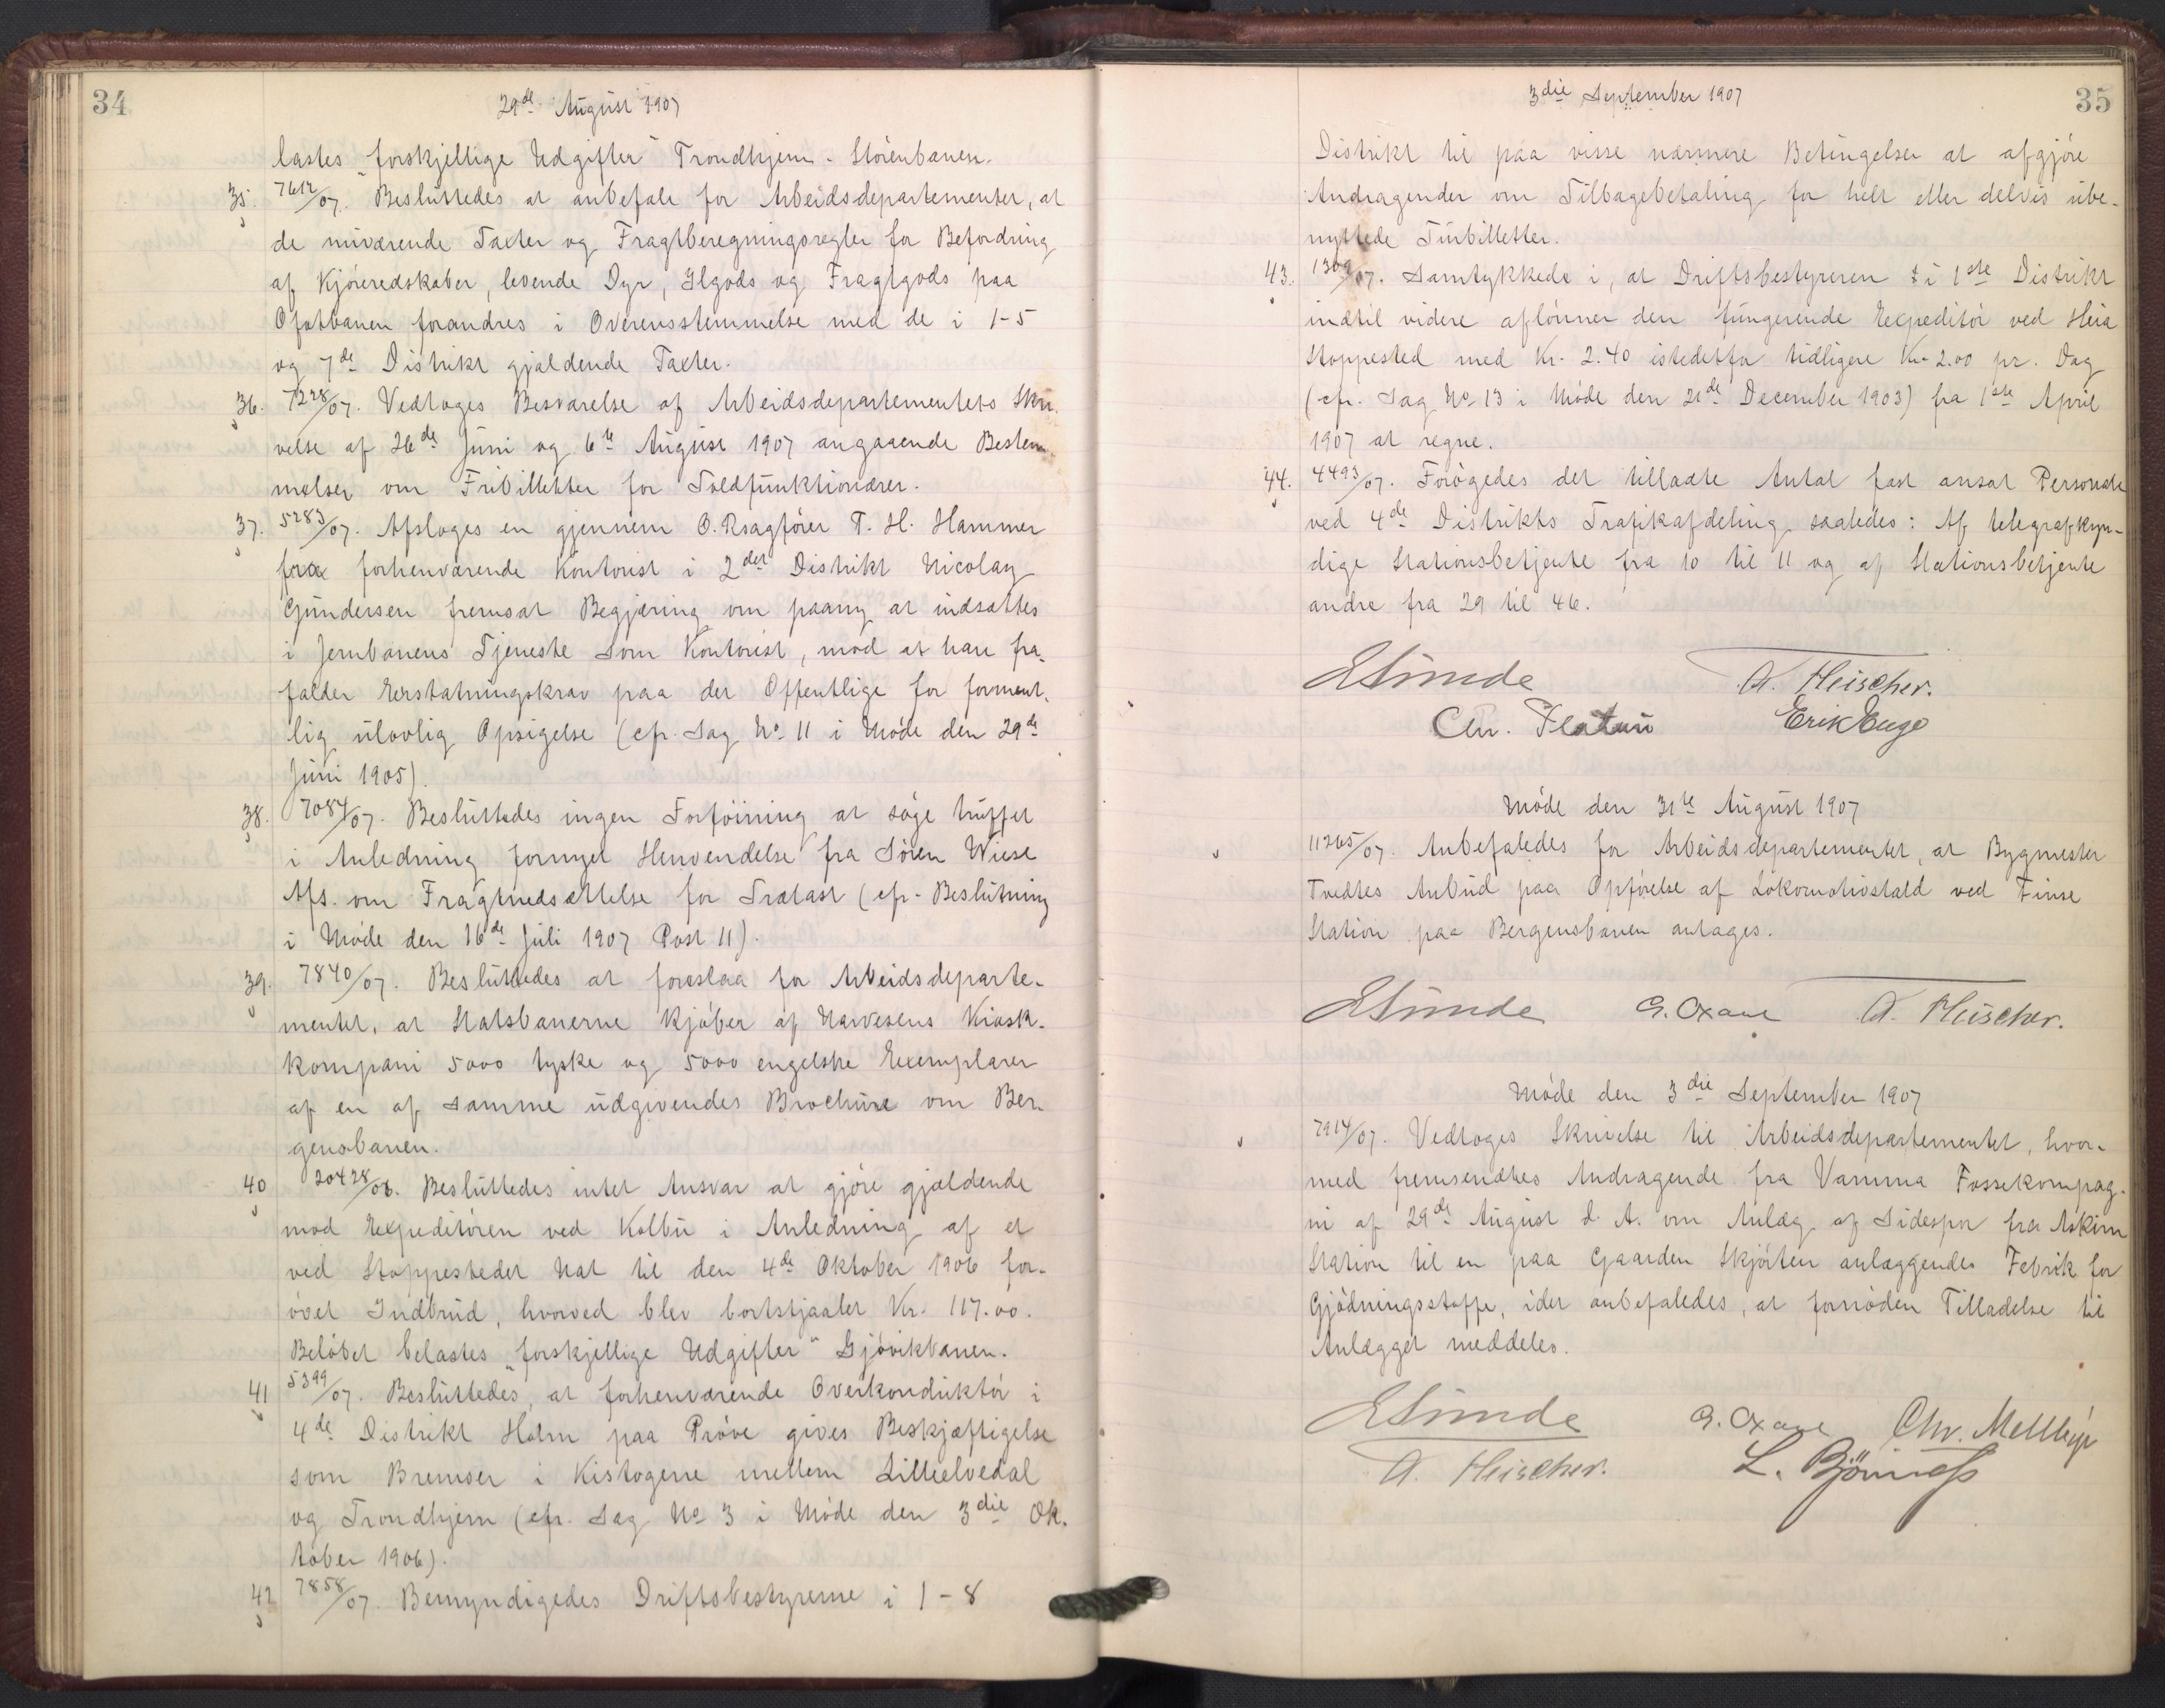 34
29de August 1907
lastes „forskjellige Udgifter" Trondhjem-Störenbanen.
35. 7612/07. Besluttedes at anbefale for Arbeidsdepartementet, at
de nuværende Taxter og Fragtberegningsregler for Befordring
af Kjöreredskaber, levende Dyr, Ilgods og Fragtgods paa
Ofotbanen forandres i Overensstemmelse med de i 1-5
og 7de Distrikt gjældende Taxter.
36. 7228/07. Vedtoges Besvarelse af Arbeidsdepartementets Skri-
velse af 26de Juni og 6te August 1907 angaaende Bestem-
melser om Fribilletter for Toldfunktionærer.
37. 5283/07. Afsloges en gjennem O.Rsagförer T. H. Hammer
fra forhenværende Kontorist i 2det Distrikt Nicolay
Gundersen fremsat Begjæring om paany at indsættes
i Jernbanens Tjeneste som Kontorist, mod at han fra-
falder Erstatningskrav paa det Offentlige for forment-
lig ulovlig Opsigelse (cfr. Sag No 11 i Möde den 29de
Juni 1905).
38. 7084/07. Besluttedes ingen Forföining at söge truffet
i Anledning fornyet Henvendelse fra Sören Wiese
Afs. om Fragtnedsættelse for Trælast (cfr. Beslutning
i Möde den 16de Juli 1907 Post 11).
39. 7840/07. Besluttedes at foreslaa for Arbeidsdeparte-
mentet, at Statsbanerne kjöber af Narvesens Kiosk-
kompani 5000 tyske og 5000 engelske Exemplarer
af en af samme udgivendes Brochure om Ber-
gensbanen.
40 20428/06. Besluttedes intet Ansvar at gjöre gjældende
mod Expeditören ved Kolbu i Anledning af et
ved Stoppestedet Nat til den 4de Oktober 1906 for-
övet Indbrud, hvorved blev bortstjaalet Kr. 117.00.
Belöbet belastes „forskjellige Udgifter" Gjövikbanen.
41 5399/07. Besluttedes, at forhenværende Overkonduktör i
4de Distrikt Holm paa Pröve gives Beskjæftigelse
som Bremser i Kistogene mellem Lilleelvedal
og Trondhjem (cfr. Sag No 3 i Möde den 3die Ok-
tober 1906).
42 7858/07. Bemyndigedes Driftsbestyrerne i 1-8
3die September 1907
35
Distrikt til paa visse nærmere Betingelser at afgjöre
Andragender om Tilbagebetaling for helt eller delvis ube-
nyttede Turbilletter.
43. 1309/07. Samtykkede i, at Driftsbestyreren i 1ste Distrikt
indtil videre aflönner den fungerende Expeditör ved Heia
Stoppested med Kr. 2.40 istedetfor tidligere Kr. 2.00 pr. Dag
(cfr. Sag No 13 i Möde den 21de December 1903) fra 1ste April
1907 at regne.
44. 4493/07. Forögedes det tilladte Antal fast ansat Personale
ved 4de Distrikts Trafikafdeling saaledes: Af telegrafkyn-
dige Stationsbetjente fra 10 til 11 og af Stationsbetjente
andre fra 29 til 46.
ESunde A. Fleischer.
Chr. Platou Erik Enge
Möde den 31te August 1907
11265/07. Anbefaledes for Arbeidsdepartementet, at Bygmester
Tvedtes Anbud paa Opförelse af Lokomotivstald ved Finse
Station paa Bergensbanen antages.
ESunde G. Oxaae A. Fleischer.
Möde den 3die September 1907
7914/07. Vedtoges Skrivelse til Arbeidsdepartementet, hvor-
med fremsendtes Andragende fra Vamma Fossekompag-
ni af 29de August d. A. om Anlæg af Sidespor fra Askim
Station til en paa Gaarden Skjörten anlæggendes Fabrik for
Gjödningsstoffe, idet anbefaledes, at fornöden Tilladelse til
Anlægget meddeles.
ESunde G. Oxaae Chr. Mellbye
A. Fleischer. L. Björnness